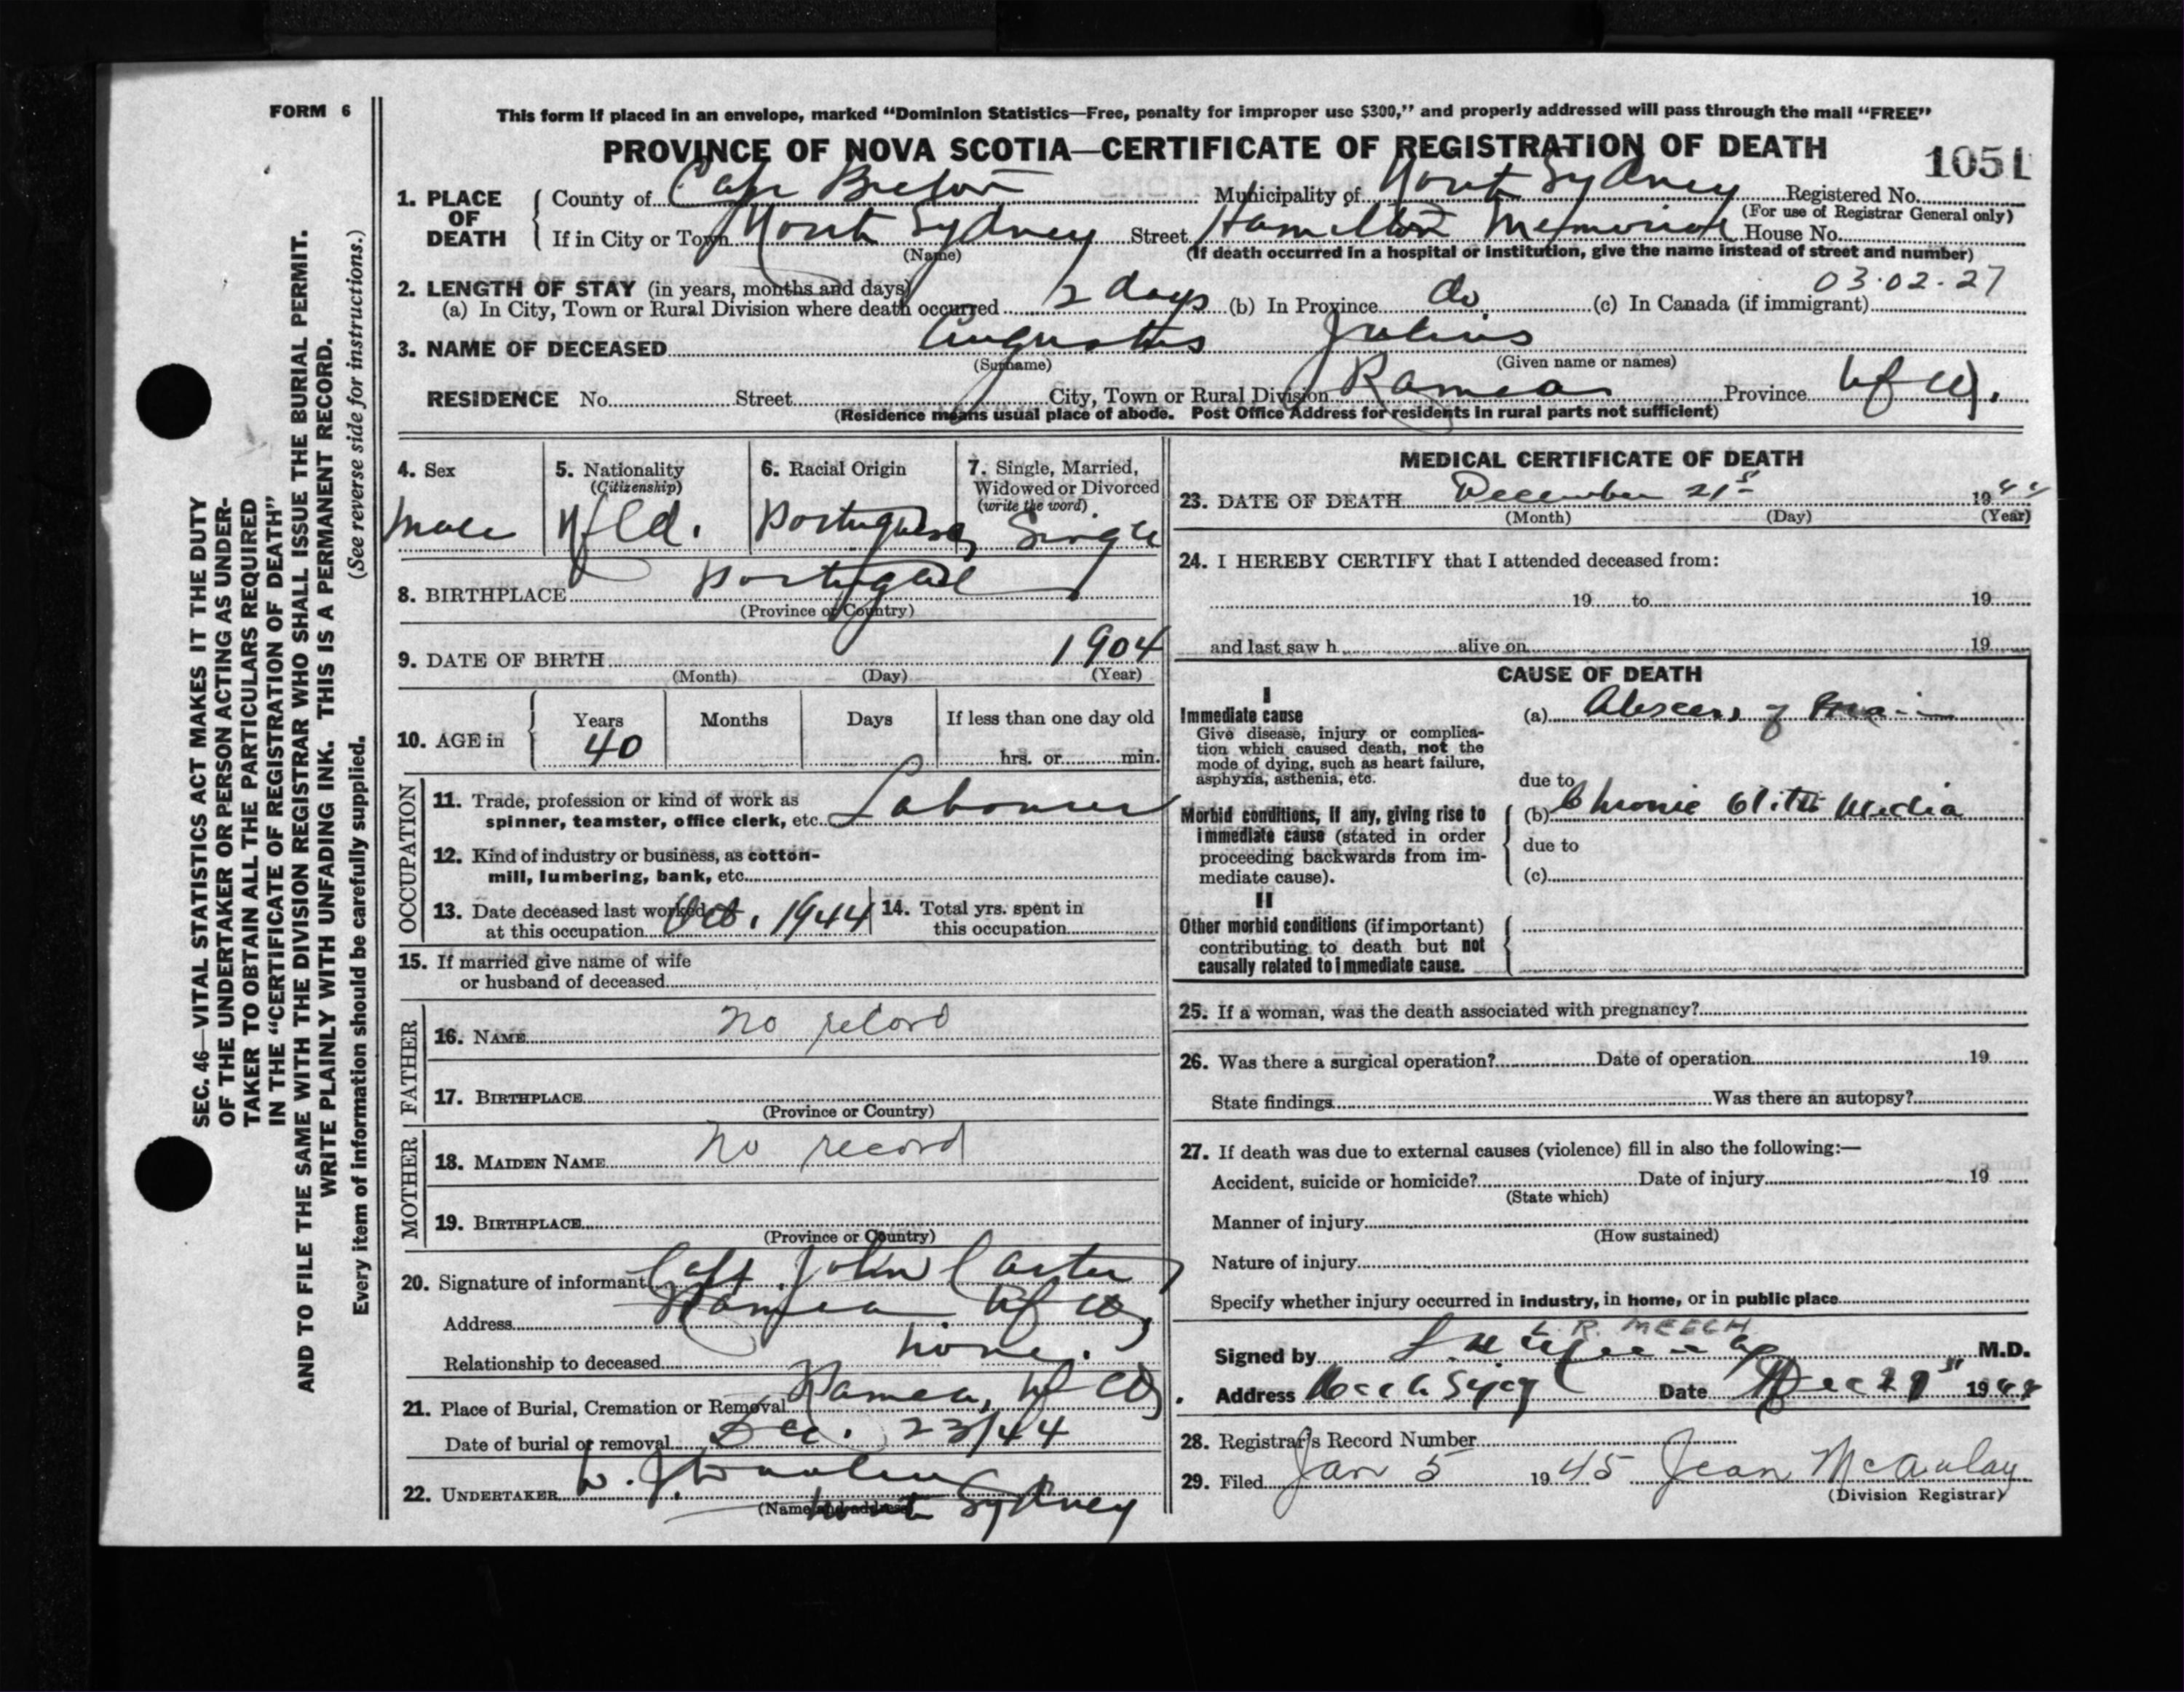 FORM 6
This form if placed in an envelope, marked “Dominion Statistics—Free, penalty for improper use $300,” and properly addressed will pass through the mail “FREE”
PROVINCE OF NOVA SCOTIA—CERTIFICATE OF REGISTRATION OF DEATH
1051
1. PLACE OF DEATH
County of Cape Breton Municipality of North Sydney Registered No.
(For use of Registrar General only)
If in City or Town North Sydney Street Hamilton Memorial House No.
(Name) (If death occurred in a hospital or institution, give the name instead of street and number)
03.02.27
2. LENGTH OF STAY (in years, months and days)
(a) In City, Town or Rural Division where death occurred 12 days (b) In Province do (c) In Canada (if immigrant)
3. NAME OF DECEASED Augustus Julius
(Surname) (Given name or names)
RESIDENCE No. Street City, Town or Rural Division Ramea Province Nfld.
(Residence means usual place of abode. Post Office Address for residents in rural parts not sufficient)
4. Sex
male
5. Nationality
(Citizenship)
Nfld.
6. Racial Origin
Portuguese
7. Single, Married,
Widowed or Divorced
(write the word)
Single
8. BIRTHPLACE Portugal
(Province or Country)
9. DATE OF BIRTH 1904
(Month) (Day) (Year)
10. AGE in
Years Months Days If less than one day old
40 hrs. or min.
OCCUPATION
11. Trade, profession or kind of work as
spinner, teamster, office clerk, etc. Labourer
12. Kind of industry or business, as cotton-
mill, lumbering, bank, etc.
13. Date deceased last worked
at this occupation Oct. 1944
14. Total yrs. spent in
this occupation
15. If married give name of wife
or husband of deceased
FATHER
16. NAME no record
17. BIRTHPLACE
(Province or Country)
MOTHER
18. MAIDEN NAME no record
19. BIRTHPLACE
(Province or Country)
20. Signature of informant Capt. John Carter
Address Ramea Nfld
Relationship to deceased none.
21. Place of Burial, Cremation or Removal Ramea, Nfld
Date of burial or removal Dec. 23/44
22. UNDERTAKER W. J.
(Name and address) North Sydney
MEDICAL CERTIFICATE OF DEATH
23. DATE OF DEATH December 21st 1944
(Month) (Day) (Year)
24. I HEREBY CERTIFY that I attended deceased from:
19 to 19
and last saw h alive on 19
CAUSE OF DEATH
I
Immediate cause
Give disease, injury or complica-
tion which caused death, not the
mode of dying, such as heart failure,
asphyxia, asthenia, etc.
(a) Abscess of Brain
due to
Morbid conditions, if any, giving rise to
immediate cause (stated in order
proceeding backwards from im-
mediate cause).
(b) Chronic Otitis Media
due to
(c)
II
Other morbid conditions (if important)
contributing to death but not
causally related to immediate cause.
25. If a woman, was the death associated with pregnancy?
26. Was there a surgical operation? Date of operation 19
State findings Was there an autopsy?
27. If death was due to external causes (violence) fill in also the following:—
Accident, suicide or homicide? Date of injury 19
(State which)
Manner of injury
(How sustained)
Nature of injury
Specify whether injury occurred in industry, in home, or in public place
L. R. MEECH
Signed by M.D.
Address Date Dec 21st 1944
28. Registrar's Record Number
29. Filed Jan 5 1945 Jean McAulay
(Division Registrar)
SEC. 46—VITAL STATISTICS ACT MAKES IT THE DUTY
OF THE UNDERTAKER OR PERSON ACTING AS UNDER-
TAKER TO OBTAIN ALL THE PARTICULARS REQUIRED
IN THE “CERTIFICATE OF REGISTRATION OF DEATH”
AND TO FILE THE SAME WITH THE DIVISION REGISTRAR WHO SHALL ISSUE THE BURIAL PERMIT.
WRITE PLAINLY WITH UNFADING INK. THIS IS A PERMANENT RECORD.
Every item of information should be carefully supplied. (See reverse side for instructions.)